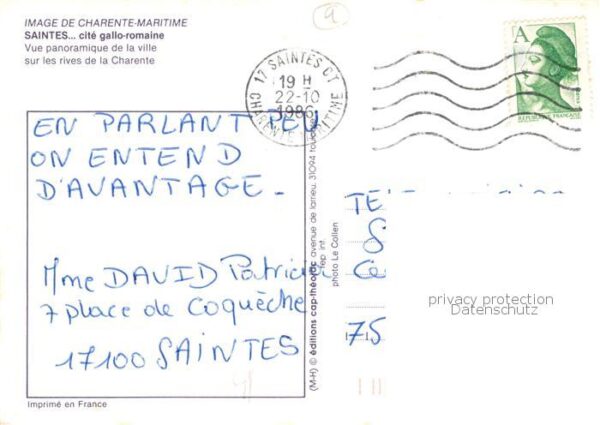 IMAGE DE CHARENTE-MARITIME
SAINTES... cité gallo-romaine
Vue panoramique de la ville
sur les rives de la Charente
9
17 SAINTES CT
19 H
22-10
1986
CHARENTE MARITIME
A
REPUBLIQUE FRANCAISE
EN PARLANT PEU
ON ENTEND
D'AVANTAGE -
Mme DAVID Patricia
7 place de Coquèche
17100 SAINTES
(M-H) © éditions cap-théojac avenue de larrieu, 31094 toulouse
Rep int.
photo Le Collen
75
privacy protection
Datenschutz
Imprimé en France